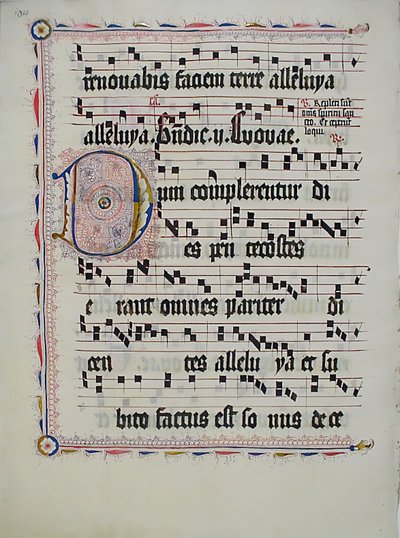 renovabis faciem terre alleluya
alleluya.
℣. Repleti sunt
omnes spiritu san
cto. Et ceperunt
loqui.
Dum complerentur di
es pen tecostes
e rant omnes pariter di
cen tes allelu ya et su
bito factus est so nus de ce